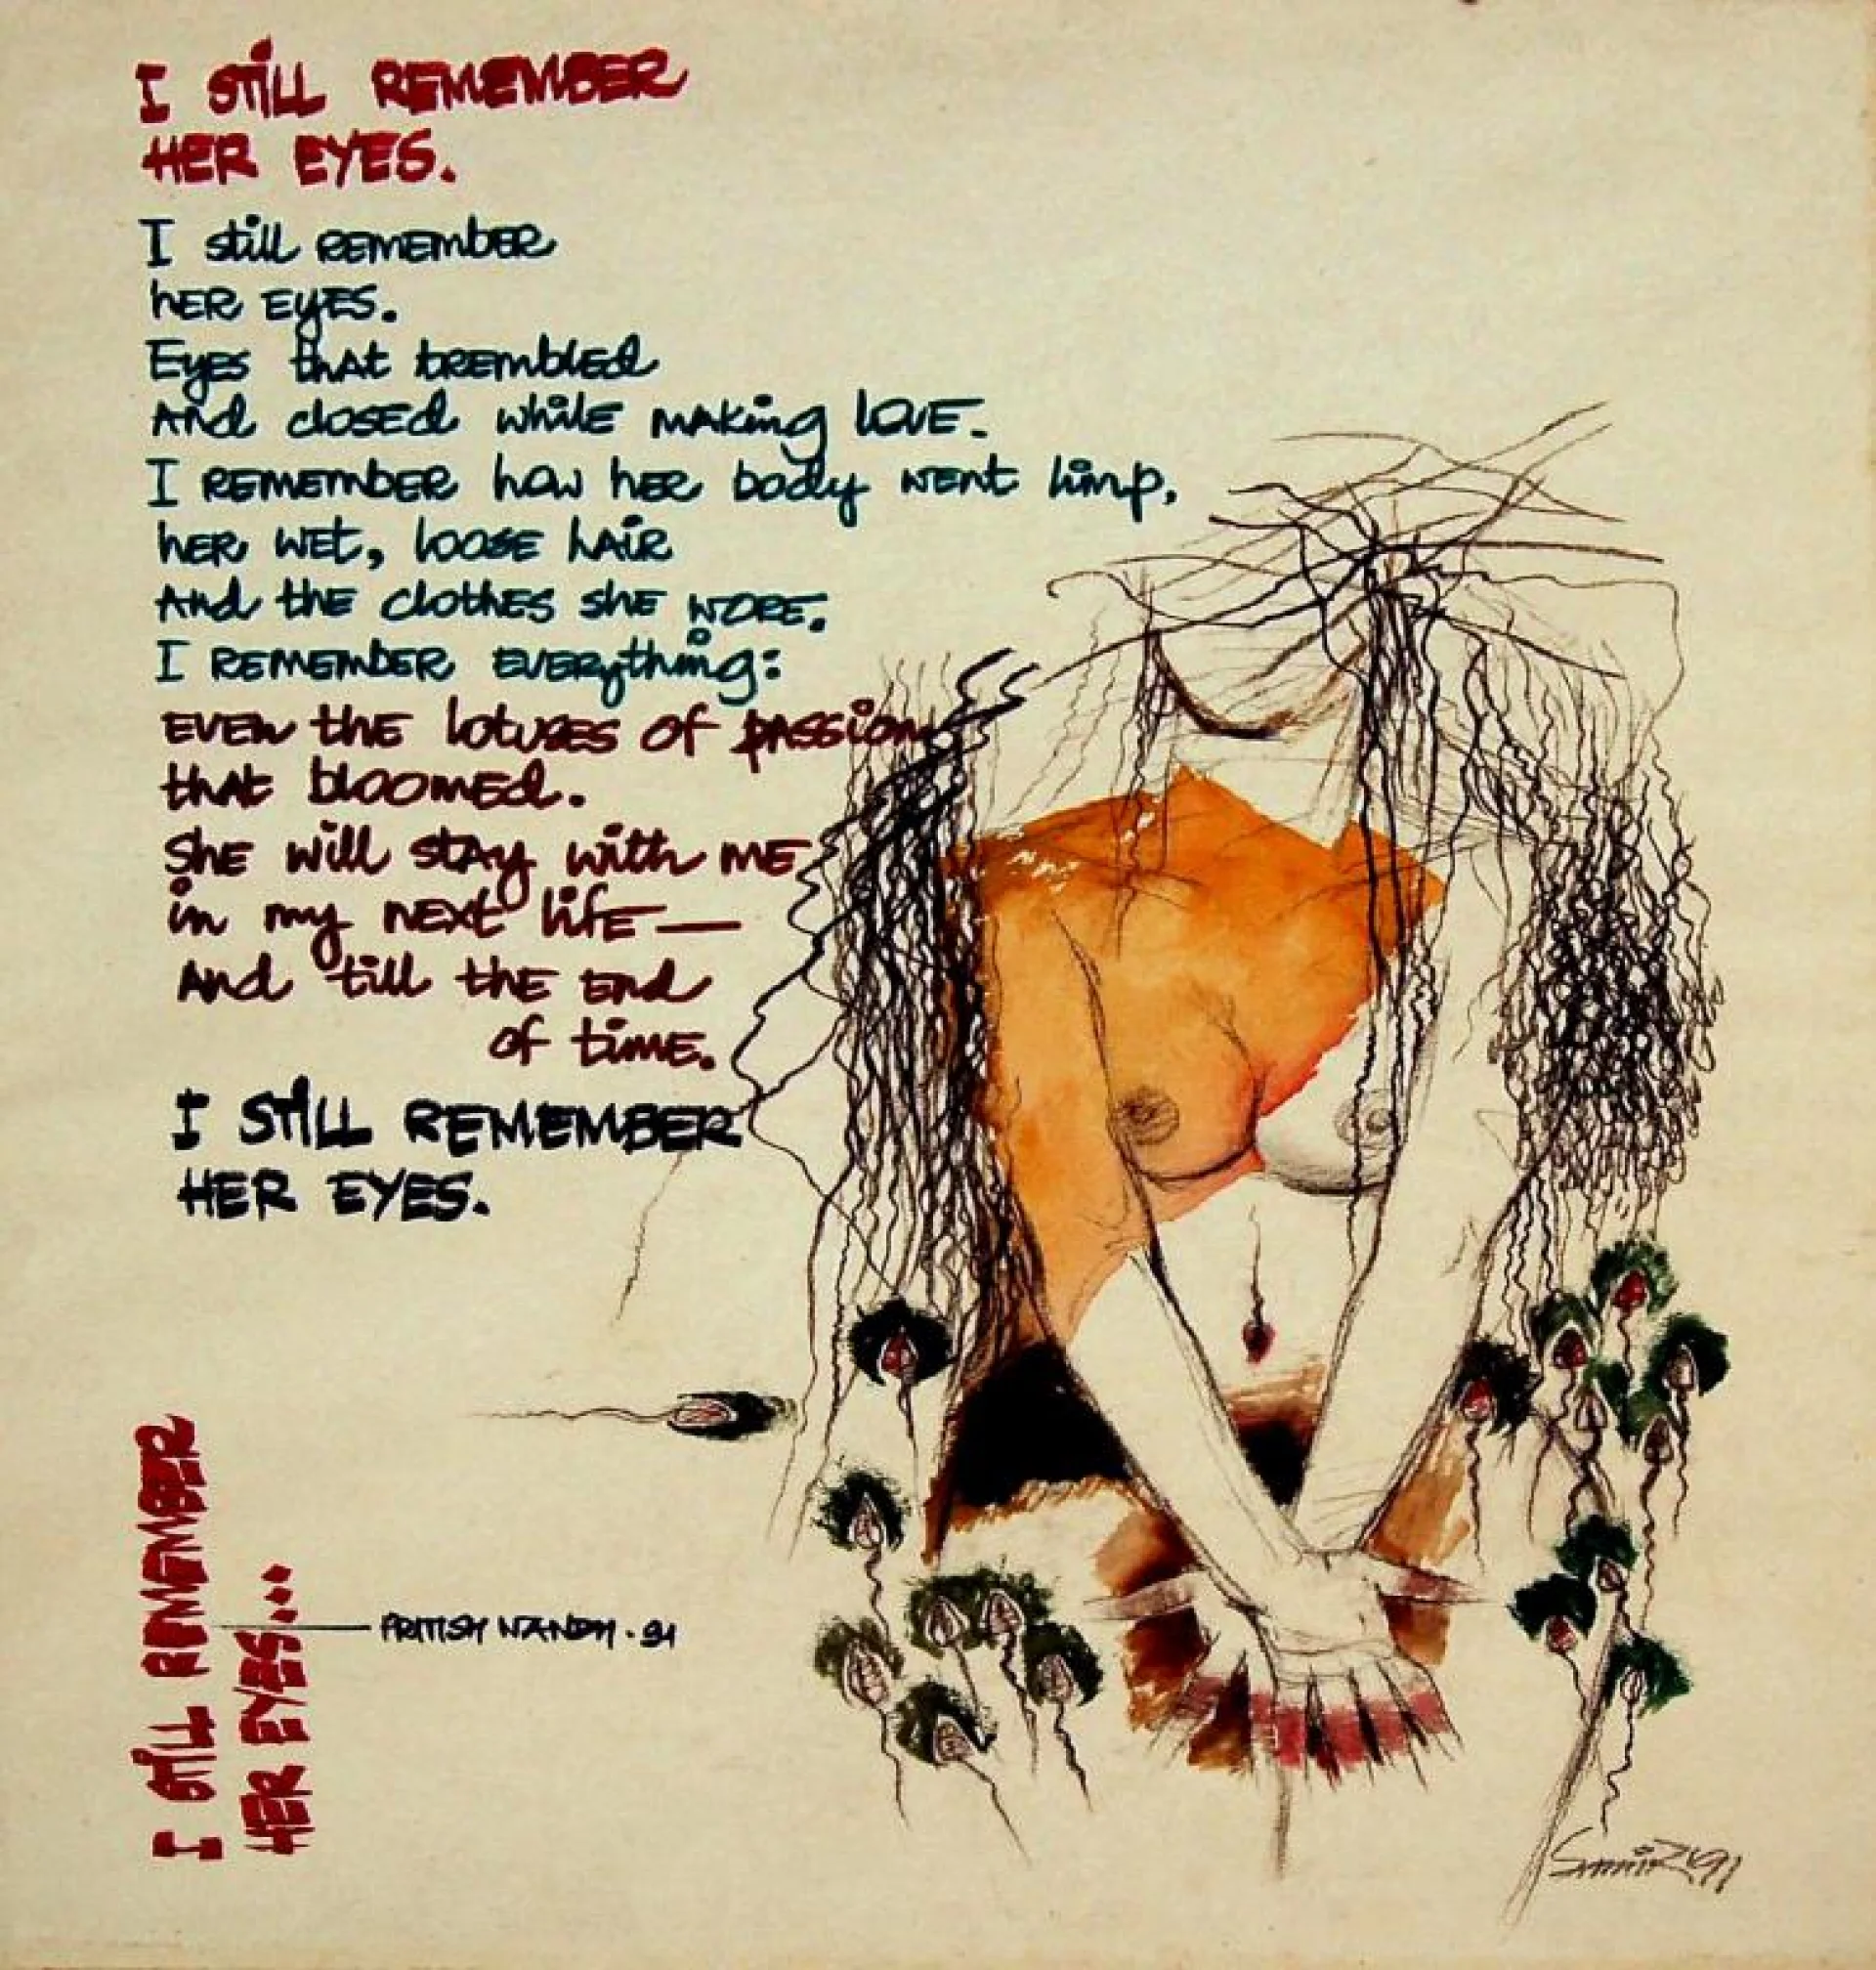 I STILL REMEMBER
HER EYES.
I still REMEMBER
hER EYES.
EyEs thAt trEmblEd
And closEd whilE mAking lovE.
I REMEMBER how hER body wEnt limp,
hER wEt, loosE hAiR
And thE clothEs shE woRE.
I REMEMBER EvERything:
EvEn thE lotusEs of pAssion
thAt bloomEd.
ShE will stAy with mE
in my nExt lifE—
And till thE End
of timE.
I STILL REMEMBER
HER EYES.
I STILL REMEMBER
HER EYES...
PRITISH NANDY. 91
Samir '91